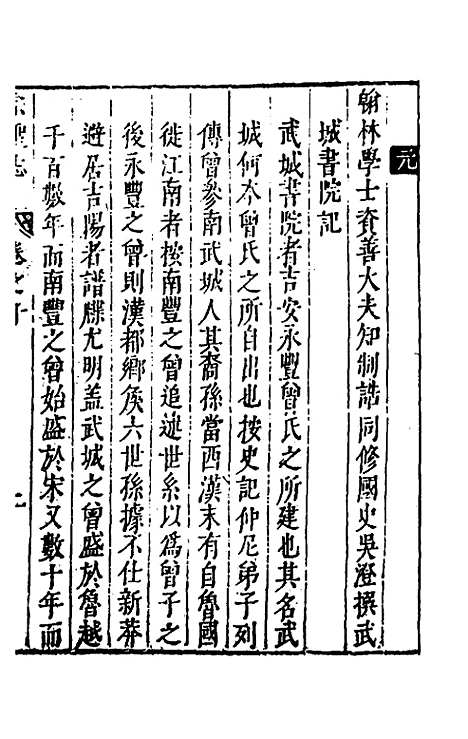 元
翰林學士資善大夫知制誥同修國史吳澄撰武
城書院記
武城書院者吉安永豐曾氏之所建也其名武
城何本曾氏之所自出也按史記仲尼弟子列
傳曾參南武城人其裔孫當西漢末有自魯國
徙江南者按南豐之曾追述世系以爲曾子之
後永豐之曾則漢都鄉侯六世孫據不仕新莽
避居吉陽者譜牒尤明盖武城之曾盛於魯越
千百數年而南豐之曾始盛於宋又數十年而
宗聖志
卷之十